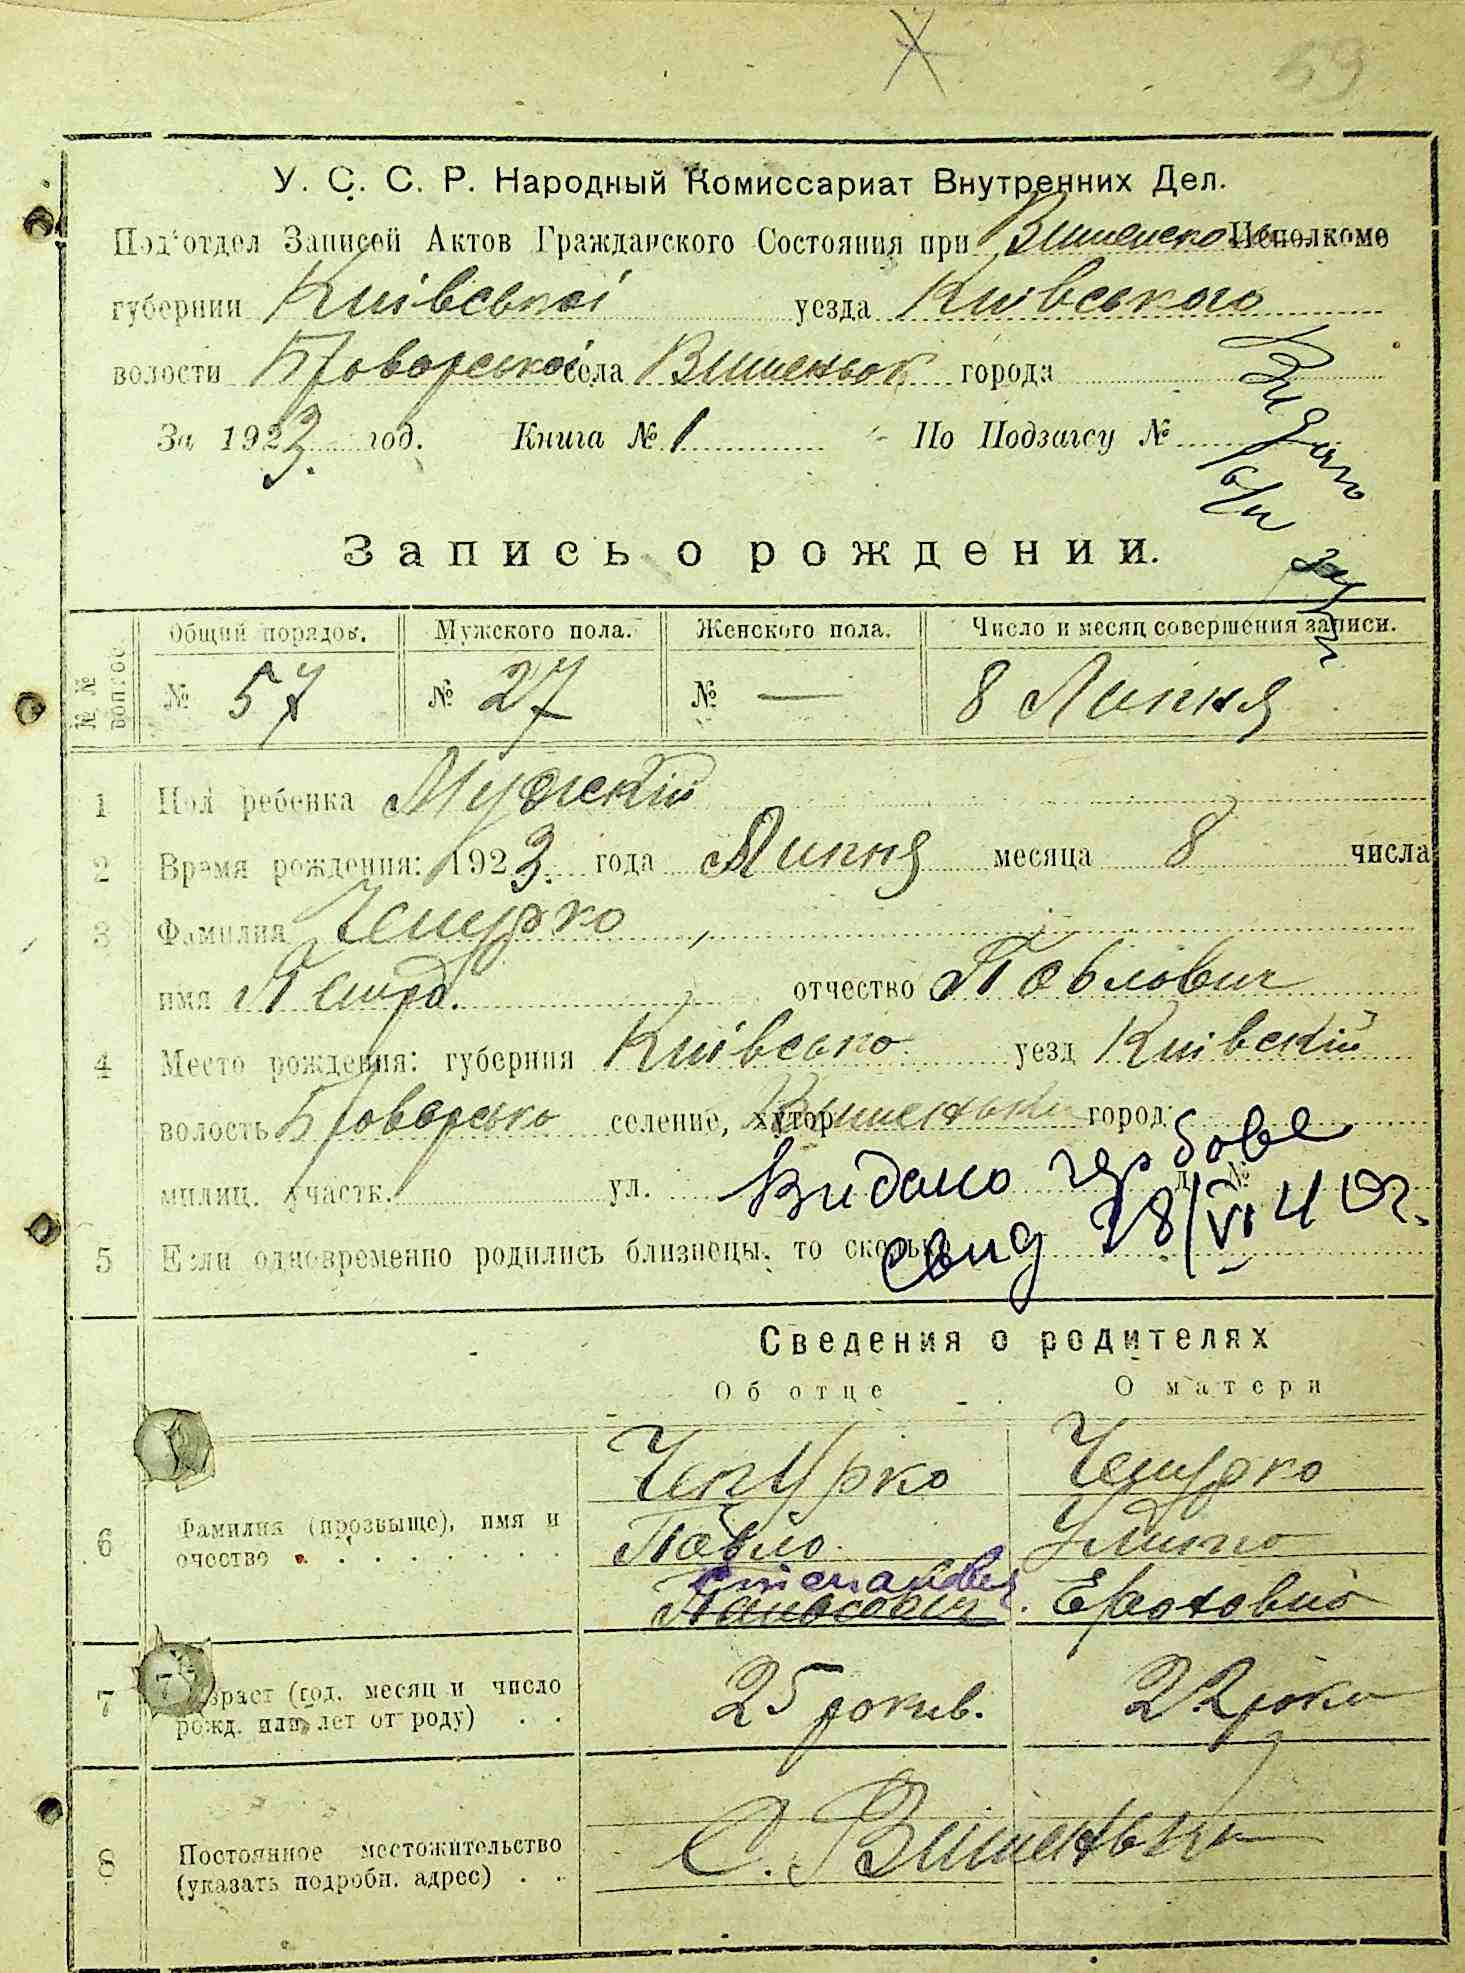 59
У. С. С. Р. Народный Комиссариат Внутренних Дел.
Под'отдел Записей Актов Гражданского Состояния при Вишенсько Исполкоме
губернии Київської уезда Київського
волости Броварської села Вишеньок города
За 1923. год. Книга № 1 По Подзагсу №
Запись о рождении.
№ № вопросов Общий порядов. Мужского пола. Женского пола. Число и месяц совершения записи.
№ 57 № 27 № — 8 Липня
1 Пол ребенка Мужский
2 Время рождения: 1923. года Липня месяца 8 числа
3 Фамилия Чепурко,
имя Петро. отчество Павлович
4 Место рождения: губерния Київсько уезд Київский
волость Броварсько селение, хутор Вишеньки город
милиц. участк. ул. д. №
Видано гербове
5 Если одновременно родились близнецы, то сколько
свид 28/VI 40г.
Сведения о родителях
Об отце О матери
Чепурко Чепурко
6 Фамилия (прозвыще), имя и Павло Улита
очество Степанович
Панасович Ефтовно
7 Возраст (год, месяц и число 25 рокив. 22 роки
рожд. или лет от роду)
8 Постоянное местожительство С. Вишеньки
(указать подробн. адрес)